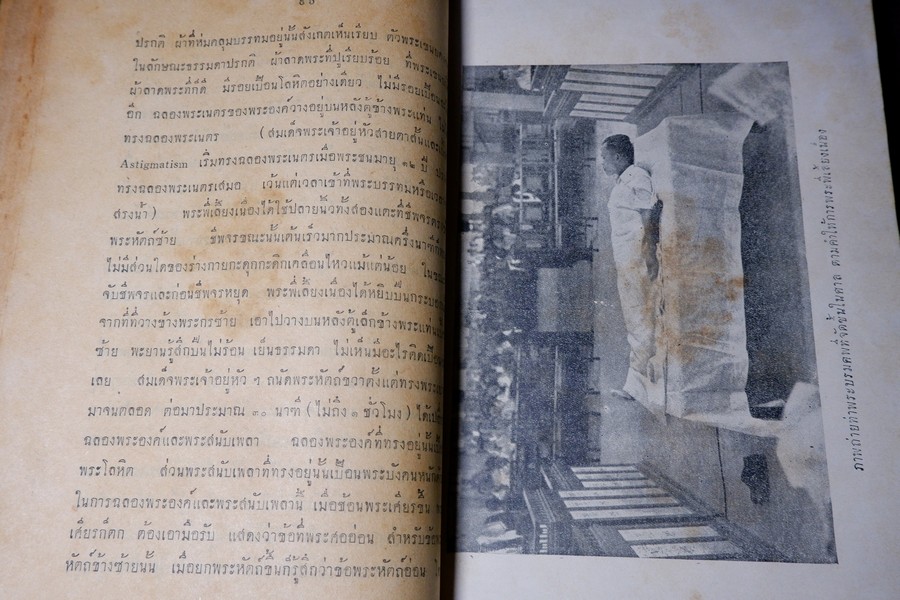 ๕๐
ปรกติ ผ้าที่ห่มคลุมบรรทมอยู่นั้นสังเกตเห็นเรียบ ตัวพระเขนย
ในลักษณะธรรมดาปรกติ ผ้าลาดพระที่ปูเรียบร้อย ที่พระเขนย
ผ้าลาดพระที่ก็ดี มีรอยเปื้อนโลหิตอย่างเดียว ไม่มีรอยเปื้อน
อีก ฉลองพระเนตรของพระองค์วางอยู่บนหลังตู้ข้างพระแท่น
ทรงฉลองพระเนตร (สมเด็จพระเจ้าอยู่หัวสายตาสั้นและ
Astigmatism เริ่มทรงฉลองพระเนตรเมื่อพระชนมายุ ๑๒ ปี
ทรงฉลองพระเนตรเสมอ เว้นแต่เวลาเข้าที่พระบรรทมหรือเวลา
สรงน้ำ) พระพี่เลี้ยงเนื่องได้ใช้ปลายนิ้วทั้งสองแตะที่ชีพจรตรง
พระหัตถ์ซ้าย ชีพจรขณะนั้นเต้นเร็วมากประมาณครึ่งนาทีก็
ไม่มีส่วนใดของร่างกายกะดุกกะดิกเคลื่อนไหวแม้แต่น้อย ในขณะ
จับชีพจรและก่อนชีพจรหยุด พระพี่เลี้ยงเนื่องได้หยิบปืนกระบอก
จากที่ที่วางข้างพระกรซ้าย เอาไปวางบนหลังตู้เล็กข้างพระแท่น
ซ้าย พะยานรู้สึกปืนไม่ร้อน เย็นธรรมดา ไม่เห็นมีอะไรติดเปื้อน
เลย สมเด็จพระเจ้าอยู่หัว ฯ ถนัดพระหัตถ์ขวาตั้งแต่ทรงพระ
มาจนตลอด ต่อมาประมาณ ๓๐ นาฑี (ไม่ถึง ๑ ชั่วโมง) ได้
ฉลองพระองค์และพระสนับเพลา ฉลองพระองค์ที่ทรงอยู่นั้น
พระโลหิต ส่วนพระสนับเพลาที่ทรงอยู่นั้นเปื้อนพระบังคนหนัก
ในการฉลองพระองค์และพระสนับเพลานี้ เมื่อช้อนพระเศียรขึ้น
เศียรก็ตก ต้องเอามือรับ แสดงว่าข้อที่พระศออ่อน สำหรับข้อ
หัตถ์ข้างซ้ายนั้น เมื่อยกพระหัตถ์ขึ้นก็รู้สึกว่าข้อพระหัตถ์อ่อน
ภาพถ่ายท่าพระบรมศพที่จัดขึ้นในศาล ตามคำให้การพระพี่เลี้ยงเนื่อง